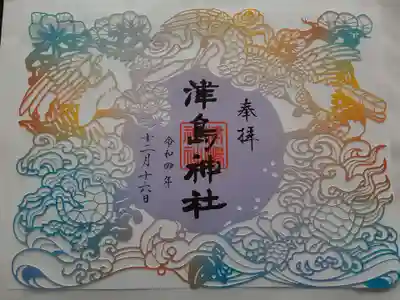 奉拝
津島神社
令和四年
十二月十六日